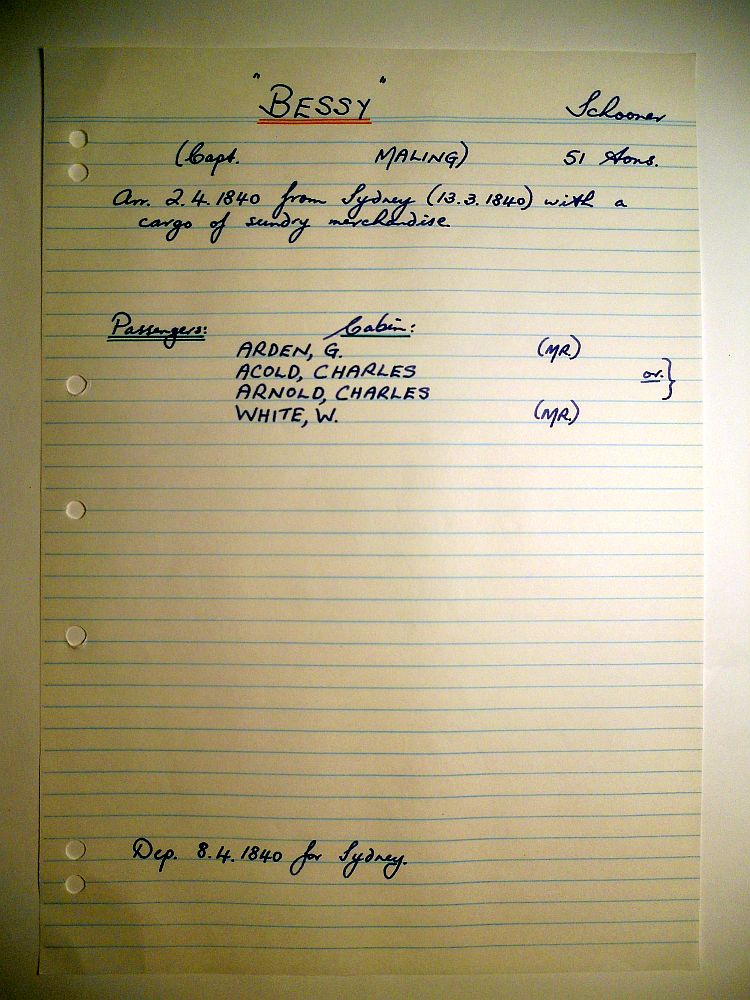 "BESSY" Schooner
(Capt. MALING) 51 tons.
Arr. 2.4.1840 from Sydney (13.3.1840) with a
cargo of sundry merchandise
Passengers: Cabin:
ARDEN, G. (MR.)
ACOLD, CHARLES or. }
ARNOLD, CHARLES
WHITE, W. (MR.)
Dep. 8.4.1840 for Sydney.